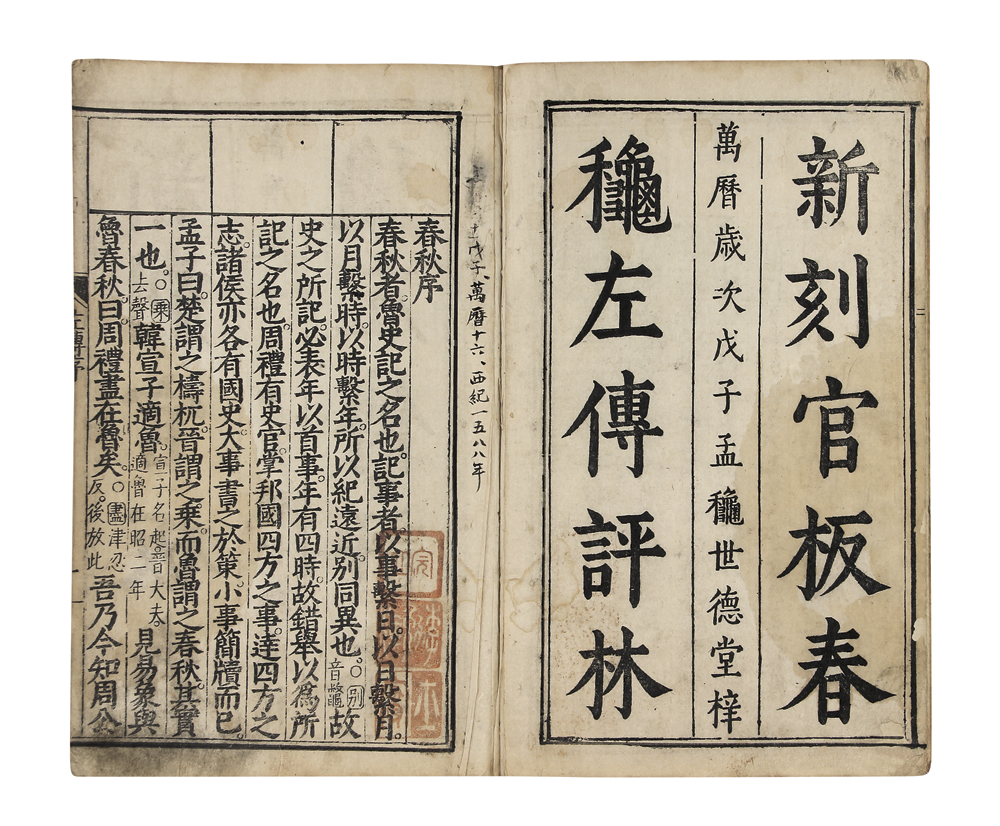 新刻官板春
萬曆歲次戊子孟龝世德堂梓
龝左傳評林
戊子、萬曆十六、西紀一五八八年
春秋序
春秋者魯史記之名也。記事者以事繫日。以日繫月。
以月繫時。以時繫年。所以紀遠近。別同異也。○別音鼈故
史之所記必表年以首事。年有四時。故錯舉以爲所
記之名也。周禮有史官。掌邦國四方之事。逹四方之
志。諸侯亦各有國史。大事書之於策。小事簡牘而已。
孟子曰。楚謂之檮杌。晉謂之乘。而魯謂之春秋。其實
一也。○乘去聲韓宣子適魯。宣子名起晉大夫適魯在昭二年見易象與
魯春秋。曰。周禮盡在魯矣。○盡津忍反。後放此吾乃今知周公
左傳序